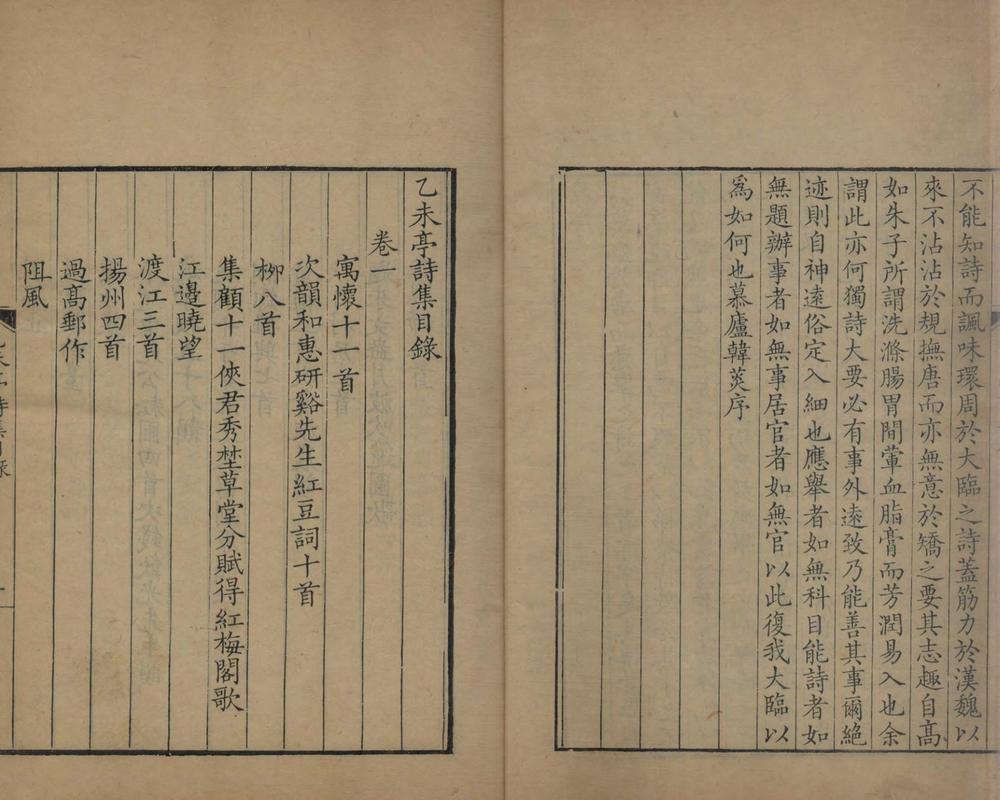 不能知詩而諷味環周於大臨之詩蓋筋力於漢魏以
來不沾沾於規撫唐而亦無意於矯之要其志趣自高
如朱子所謂洗滌腸胃間葷血脂膏而芳潤易入也余
謂此亦何獨詩大要必有事外遠致乃能善其事爾絶
迹則自神遠俗定入細也應舉者如無科目能詩者如
無題辦事者如無事居官者如無官以此復我大臨以
爲如何也慕廬韓菼序
乙未亭詩集目錄
卷一
寓懷十一首
次韻和惠研谿先生紅豆詞十首
柳八首
集顧十一俠君秀埜草堂分賦得紅梅閣歌
江邊曉望
渡江三首
揚州四首
過高郵作
阻風